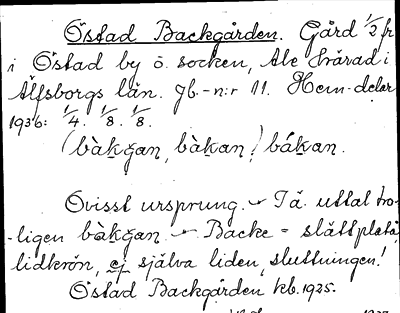 Östad Backgården. Gård 1/2 fr
i Östad by o. socken, Ale härad i
Älfsborgs län. Jb.-n:r 11. Hem-delar
1936: 1/4. 1/8. 1/8.
(bàkgan, bàkan! bákan.
Ovisst ursprung. - Tä. uttal tro-
-ligen bàkgan. - Backe = slättplatå,
lidkrön, ej själva liden, sluttningen!
Östad Backgården kb. 1925.